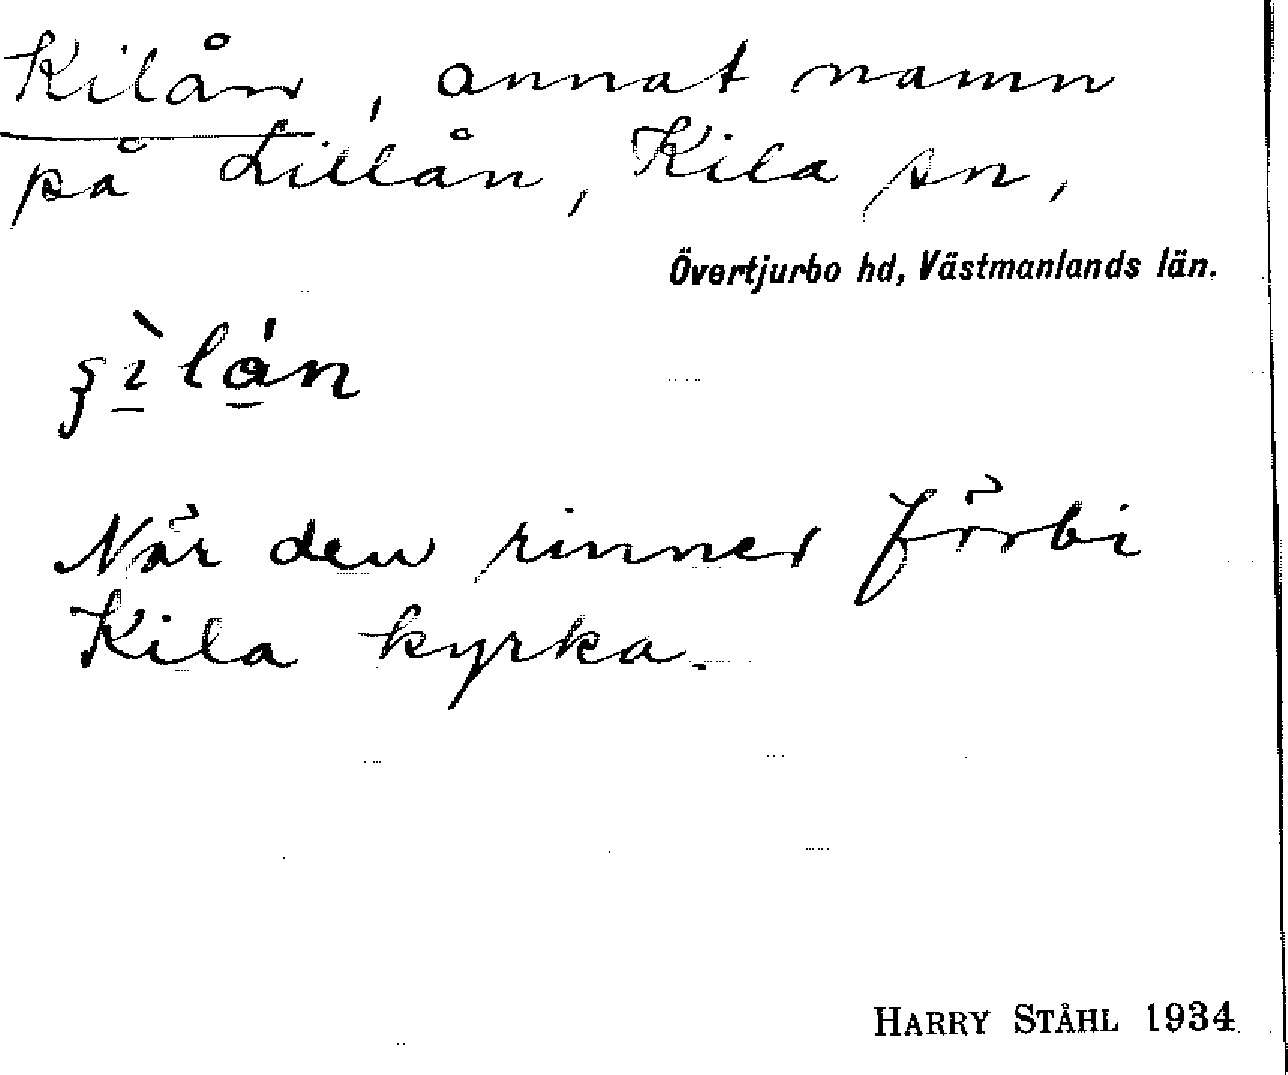 Kilån, annat namn
på Lillån, Kila sn,
Övertjurbo hd, Västmanlands län.
När den rinner förbi
Kila kyrka.
HARRY STÅHL 1934